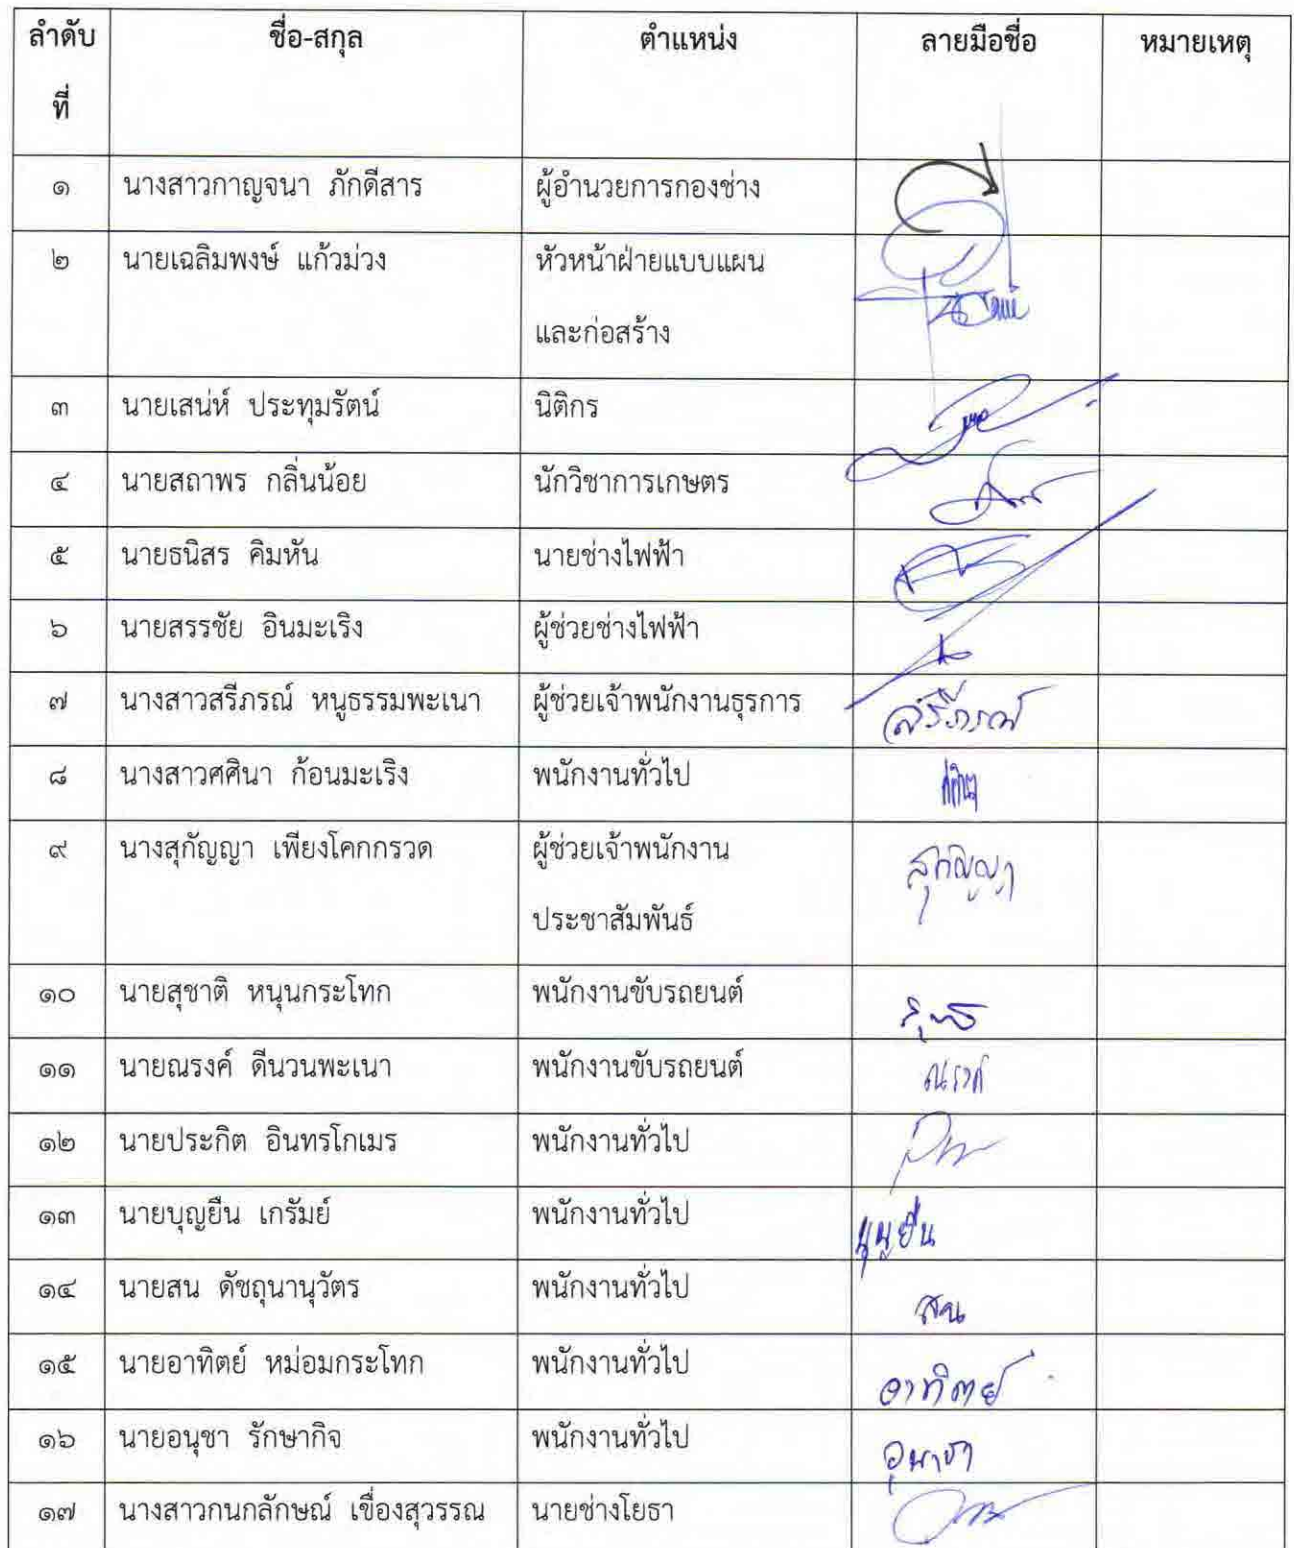 ลำดับที่ ชื่อ-สกุล ตำแหน่ง ลายมือชื่อ หมายเหตุ
๑ นางสาวกาญจนา ภักดีสาร ผู้อำนวยการกองช่าง
๒ นายเฉลิมพงษ์ แก้วม่วง หัวหน้าฝ่ายแบบแผน
และก่อสร้าง
๓ นายเสน่ห์ ประทุมรัตน์ นิติกร
๔ นายสถาพร กลิ่นน้อย นักวิชาการเกษตร
๕ นายธนิสร คิมหัน นายช่างไฟฟ้า
๖ นายสรรชัย อินมะเริง ผู้ช่วยช่างไฟฟ้า
๗ นางสาวสรีภรณ์ หนูธรรมพะเนา ผู้ช่วยเจ้าพนักงานธุรการ สรีภรณ์
๘ นางสาวศศินา ก้อนมะเริง พนักงานทั่วไป ศศินา
๙ นางสุกัญญา เพียงโคกกรวด ผู้ช่วยเจ้าพนักงาน สุกัญญา
ประชาสัมพันธ์
๑๐ นายสุชาติ หนุนกระโทก พนักงานขับรถยนต์
๑๑ นายณรงค์ ดีนวนพะเนา พนักงานขับรถยนต์ ณรงค์
๑๒ นายประกิต อินทรโกเมร พนักงานทั่วไป
๑๓ นายบุญยืน เกรัมย์ พนักงานทั่วไป บุญยืน
๑๔ นายสน ดัชถุนานุวัตร พนักงานทั่วไป สน
๑๕ นายอาทิตย์ หม่อมกระโทก พนักงานทั่วไป อาทิตย์
๑๖ นายอนุชา รักษากิจ พนักงานทั่วไป
๑๗ นางสาวกนกลักษณ์ เขื่องสุวรรณ นายช่างโยธา